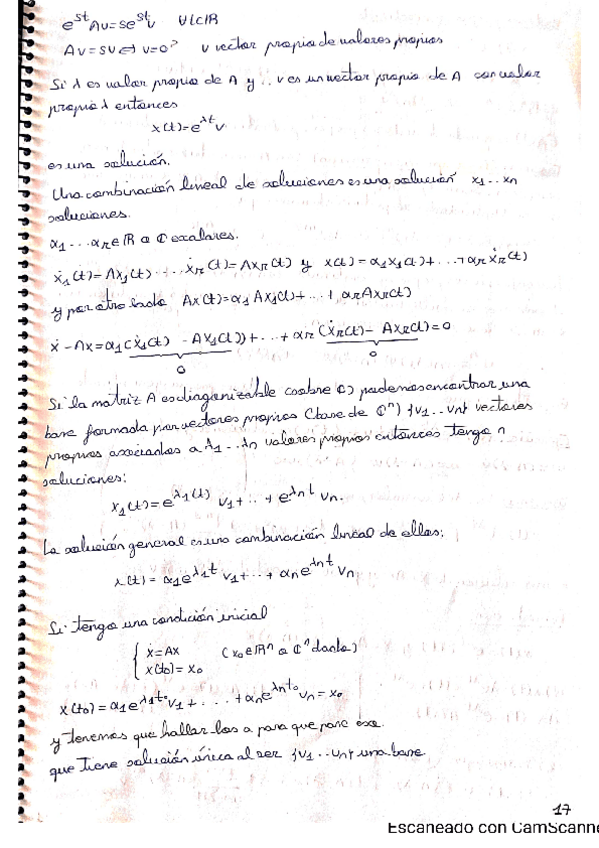 e^{st} Av = se^{st} v   ∀t∈ℝ
Av = sv ⟺ v=0 ó v vector propio de valores propios
Si λ es valor propio de A y .. v es un vector propio de A con valor
propio λ entonces
x(t)=e^{λt} v
es una solución.
Una combinación lineal de soluciones es una solución x₁ .. xn
soluciones.
α₁ ... αr ∈ ℝ o ℂ escalares.
ẋ₁(t) = Ax₁(t) ... ẋr(t) = Axr(t) y x(t) = α₁x₁(t) + .. + αr ẋr(t)
y por otro lado Ax(t) = α₁Ax₁(t) + .. + αrAxr(t)
ẋ - Ax = α₁(ẋ₁(t) - Ax₁(t)) + .. + αr(ẋr(t) - Axr(t)) = 0
0 0
Si la matriz A es diagonizable (sobre ℂ) podemos encontrar una
base formada por vectores propios (base de ℂⁿ) {v₁ .. vn} vectores
propios asociados a λ₁ ... λn valores propios entonces tengo n
soluciones:
x₁(t) = e^{λ₁(t)} v₁ + .. + e^{λn t} vn.
La solución general es una combinación lineal de ellas:
x(t) = α₁e^{λ₁t} v₁ + .. + αn e^{λn t} vn
Si tengo una condición inicial
{ ẋ = Ax   (x₀ ∈ ℝⁿ o ℂⁿ dado)
x(t₀) = x₀
x(t₀) = α₁e^{λ₁t₀} v₁ + .... + αn e^{λn t₀} vn = x₀
y tenemos que hallar los α para que pase eso.
que tiene solución única al ser {v₁ .. vn} una base.
17
Escaneado con CamScanne